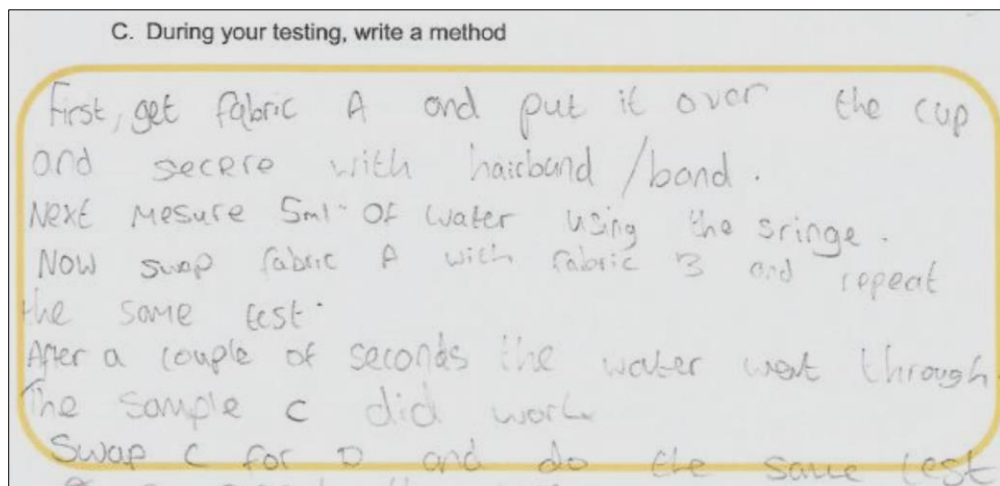 C. During your testing, write a method
First, get fabric A and put it over the cup
and secere with hairband / band.
Next mesure 5ml of water using the sringe.
Now swap fabric A with fabric B and repeat
the same test.
After a couple of seconds the water went through
The sample C did work
Swap C for D and do the same test